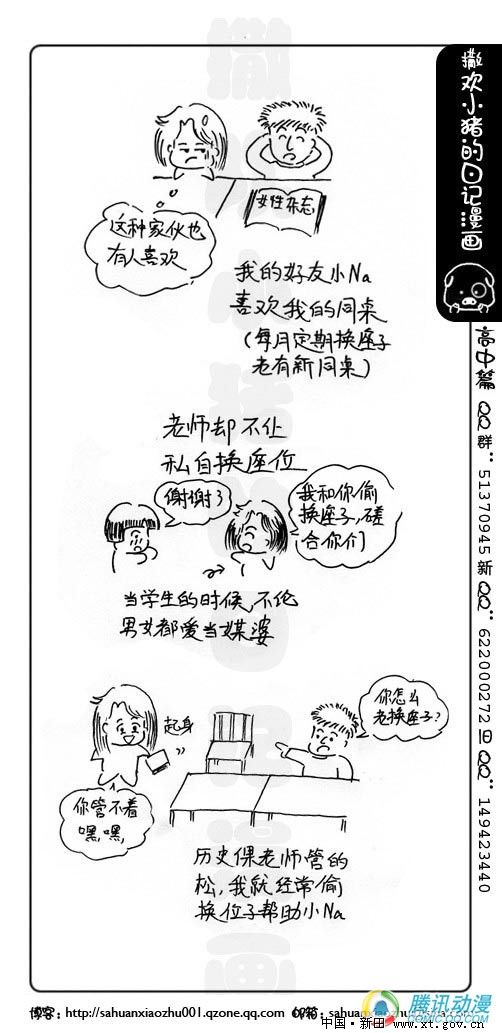 撒欢小猪的日记漫画
高中篇 QQ群：51370945 新QQ：622000272 旧QQ：149423440
女性杂志
这种家伙也
有人喜欢
我的好友小Na
喜欢我的同桌
(每月定期换座子
老有新同桌)
老师却不让
私自换座位
谢谢了
我和你偷
换座子,磋
合你们
当学生的时候,不伦
男女都爱当媒婆
你怎么
老换座子?
起身
你管不着
嘿,嘿,
历史课老师管的
松,我就经常偷
换位子帮助小Na
腾讯动漫
COMIC.QQ.COM
博客：http://sahuanxiaozhu001.qzone.qq.com 邮箱：sahuanxiaozhu
中国·新田 www.xt.gov.cn